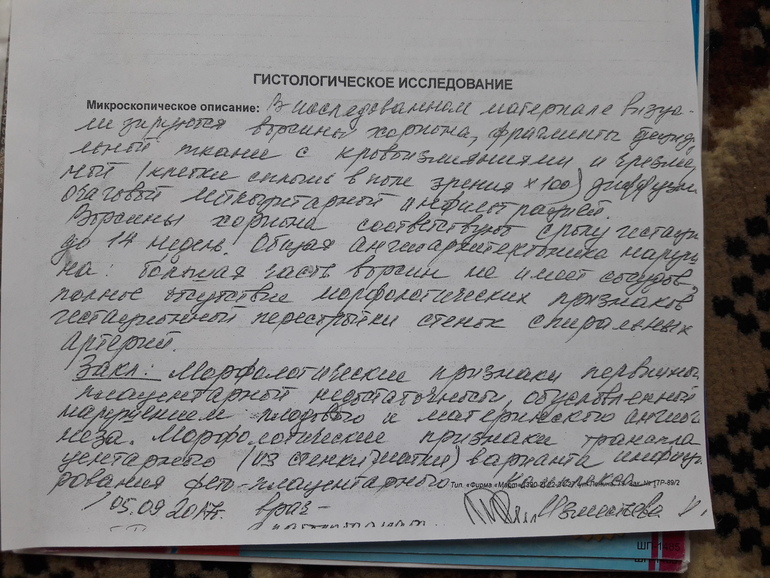 ГИСТОЛОГИЧЕСКОЕ ИССЛЕДОВАНИЕ
Микроскопическое описание: В исследованном материале визуа-
лизируются ворсины хориона, фрагменты
льной ткани с кровоизлияниями и чрезме
ной (клетки сплошь в поле зрения х100) диффузн
очаговой лейкоцитарной инфильтрацией.
Ворсины хориона соответствуют сроку гестаци
до 14 недель. Общая ангиоархитектоника наруше
на: большая часть ворсин не имеет сосудов,
полное отсутствие морфологических признаков
гестационной перестройки стенок спиральных
артерий.
Закл: Морфологические признаки первичной
плацентарной недостаточности, обусловленной
нарушением плодового и материнского ангио
неза. Морфологические признаки транспла
центарного (из стенки матки) варианта инфици
рования фето-плацентарного комплекса
05.09 2017г. врач-
ШГ-1485